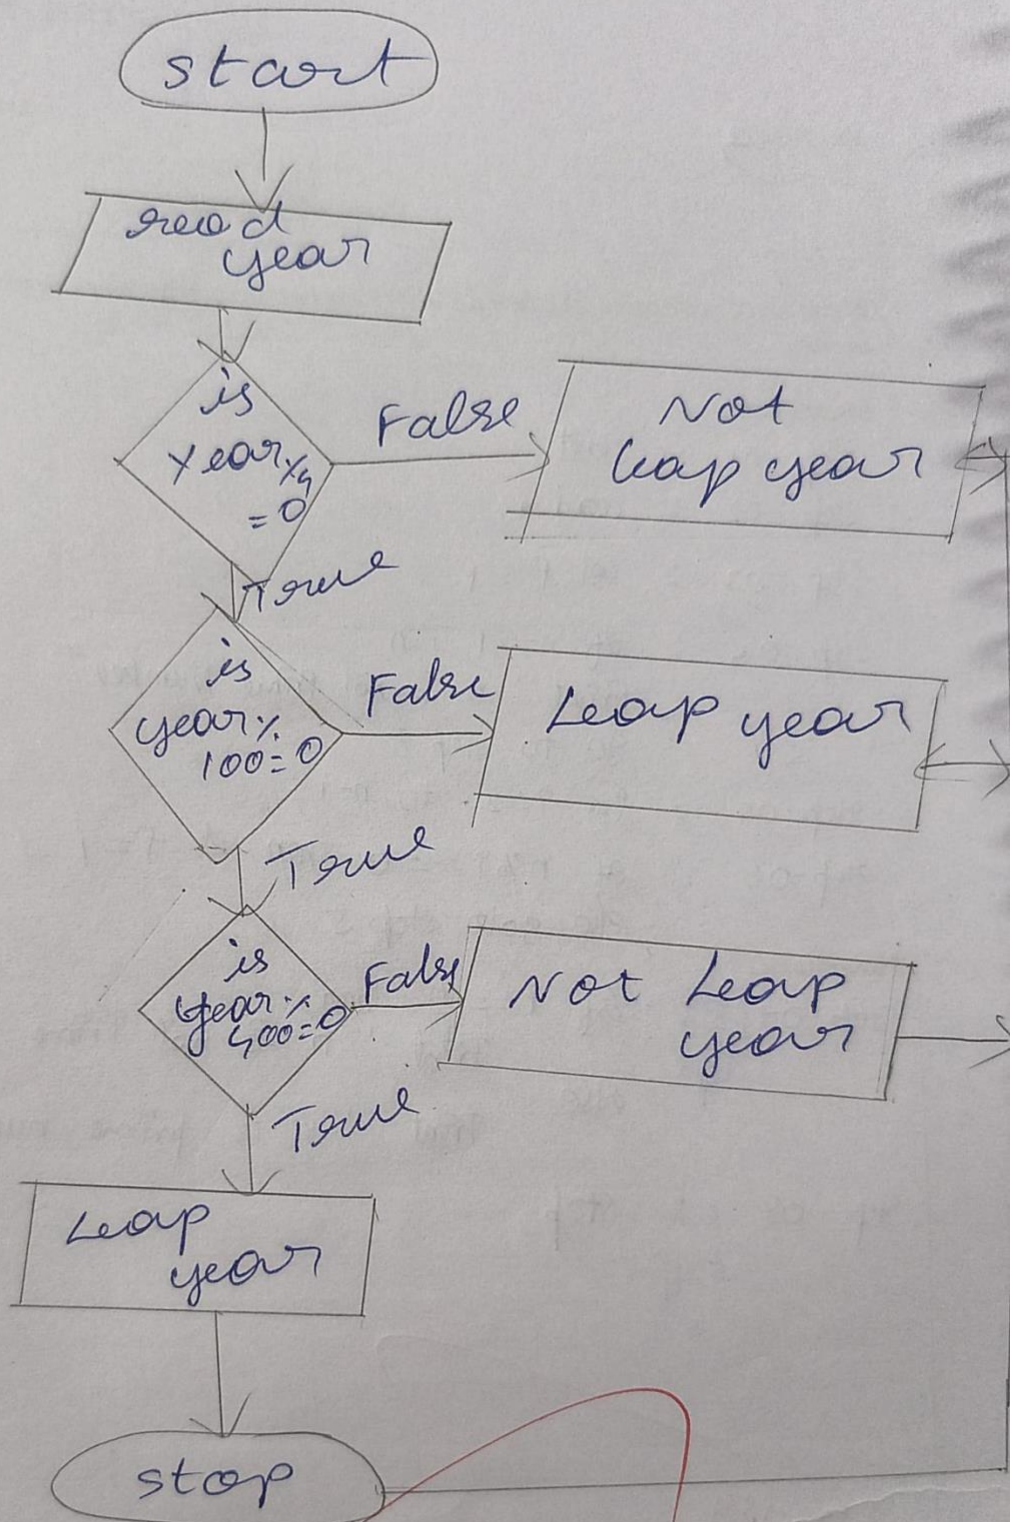 start
read
year
is
Year%4
=0
False
Not
leap year
True
is
year%
100=0
False
Leap year
True
is
year%
400=0
False
Not Leap
year
True
Leap
year
stop